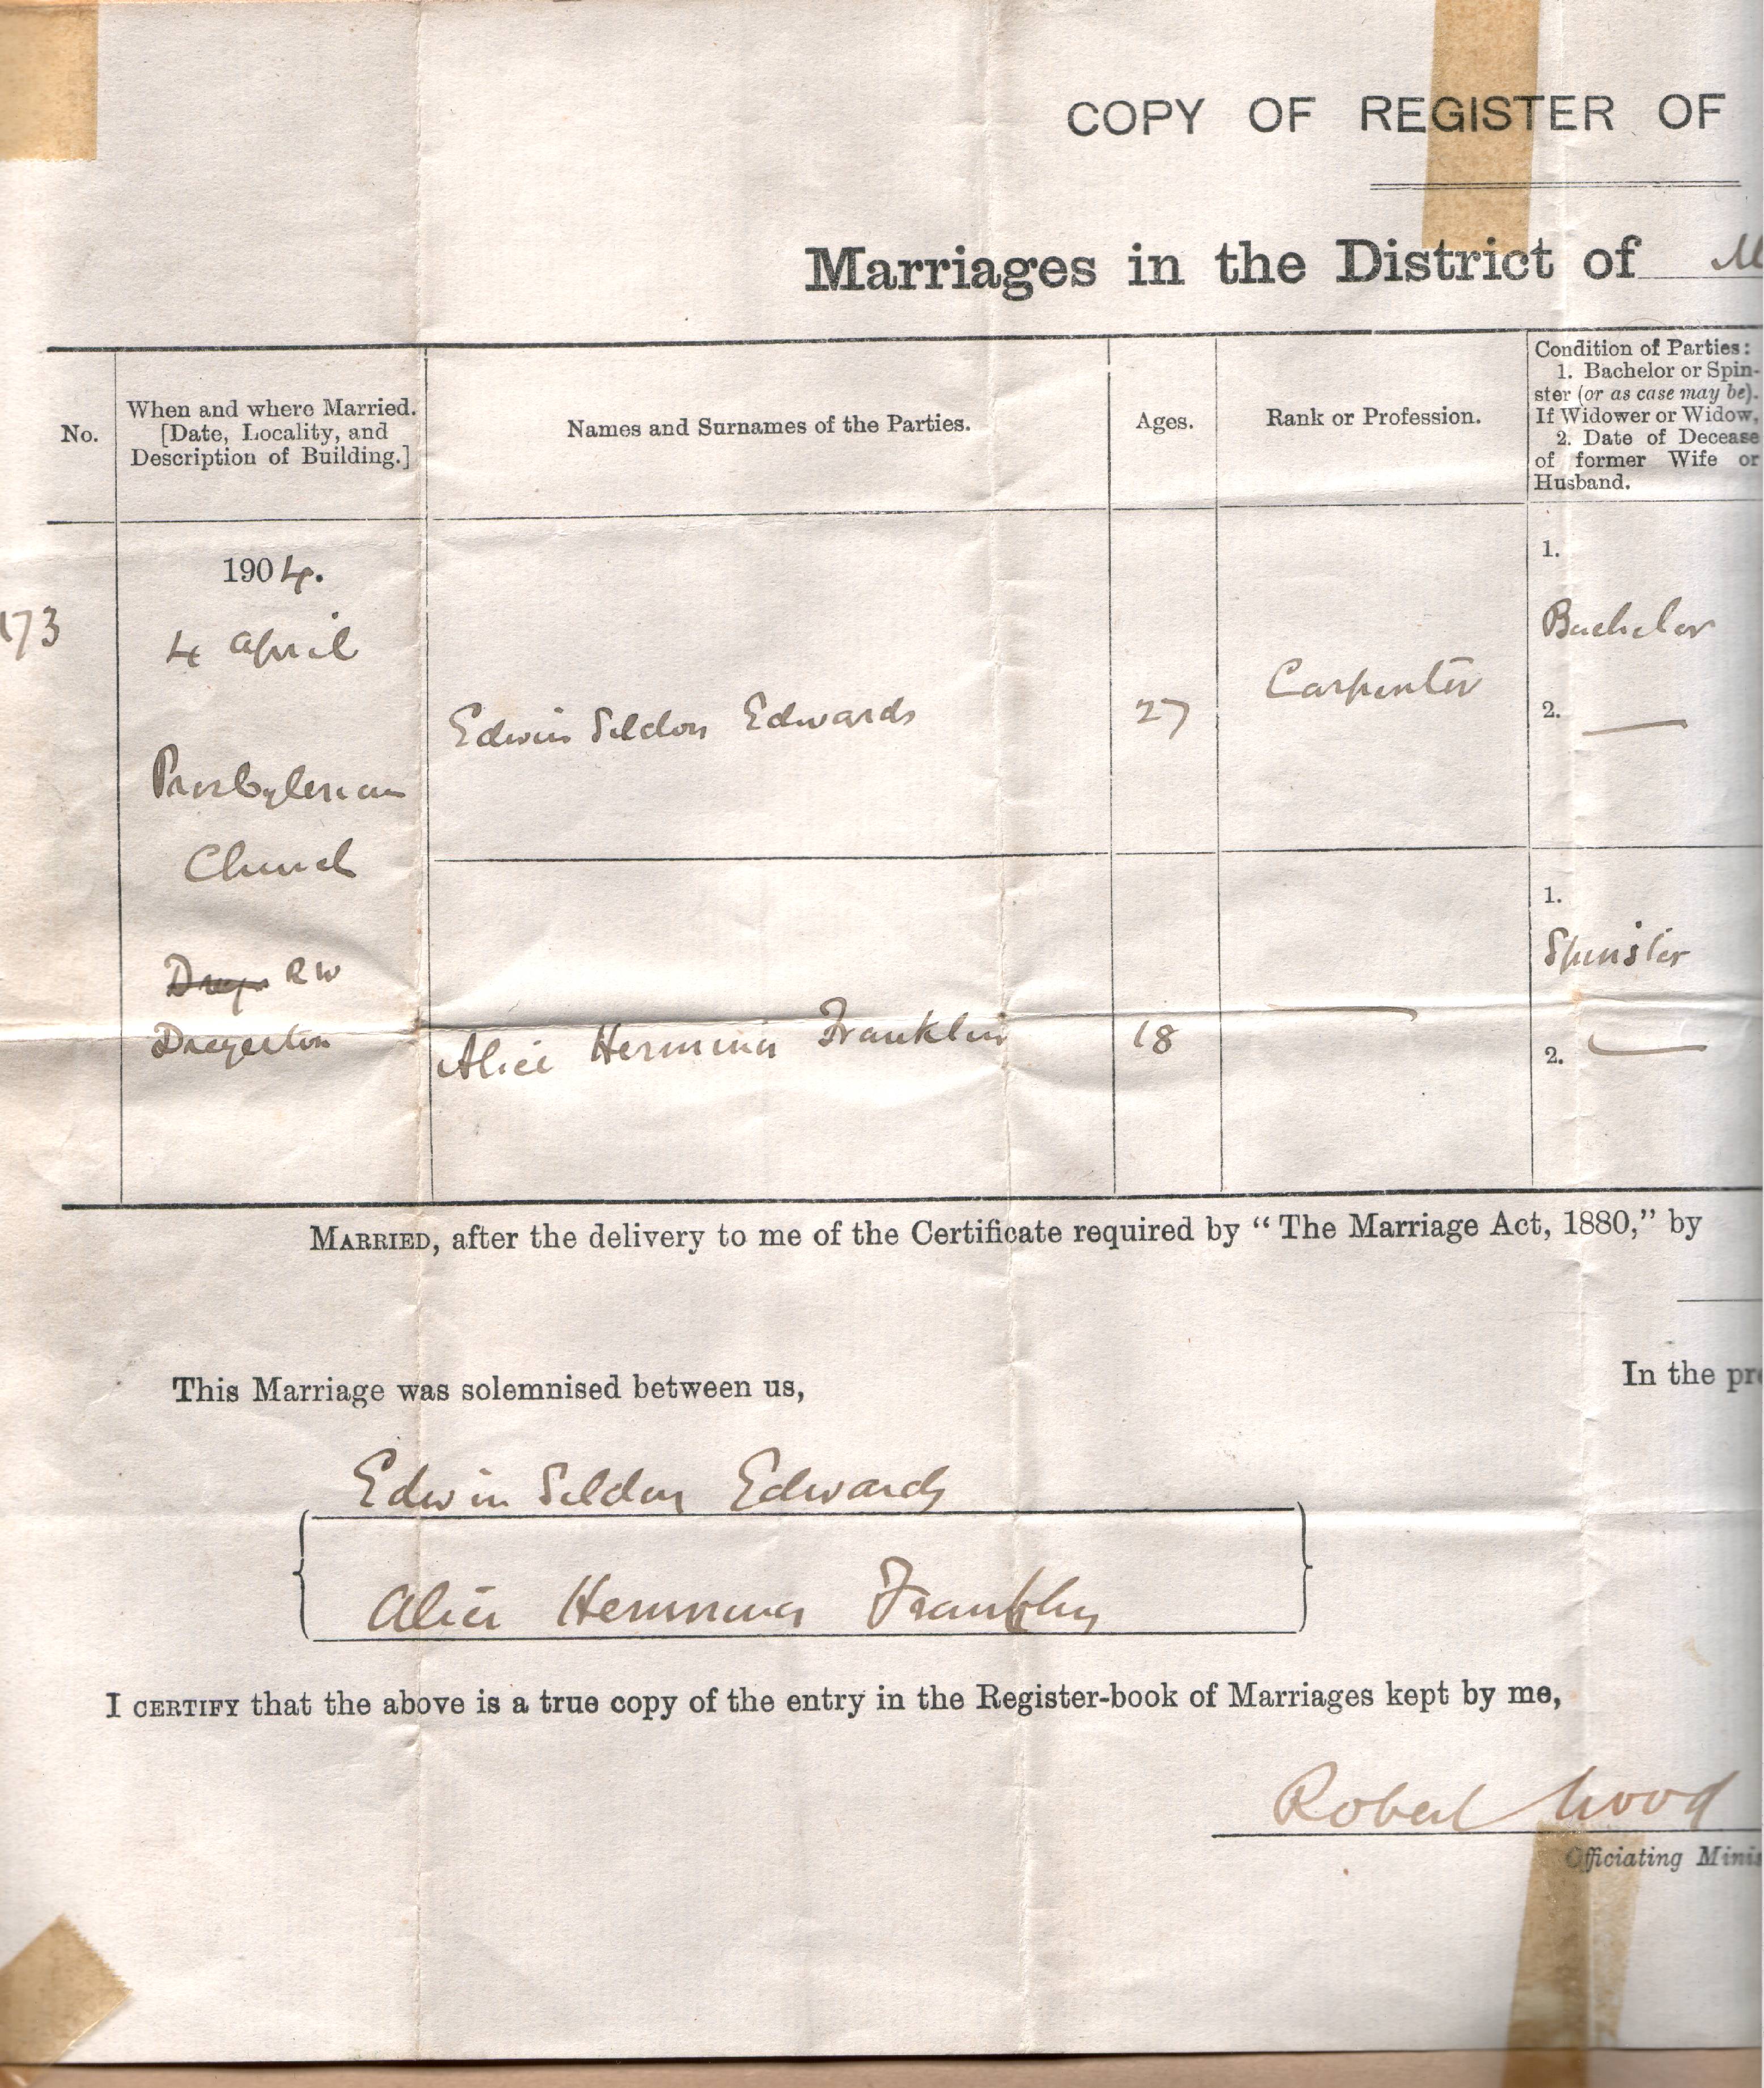 COPY OF REGISTER OF
Marriages in the District of M
No.
When and where Married.
[Date, Locality, and
Description of Building.]
Names and Surnames of the Parties.
Ages.
Rank or Profession.
Condition of Parties:
1. Bachelor or Spin-
ster (or as case may be).
If Widower or Widow,
2. Date of Decease
of former Wife or
Husband.
173
1904.
4 April
Presbyterian
Church
RW
Dreyerton
Edwin Seldon Edwards
27
Carpenter
1.
Bachelor
2. —
Alice Hermina Franklin
18
—
1.
Spinster
2. —
MARRIED, after the delivery to me of the Certificate required by “The Marriage Act, 1880,” by
This Marriage was solemnised between us,
In the pre
Edwin Seldon Edwards
Alice Hermina Franklin
I CERTIFY that the above is a true copy of the entry in the Register-book of Marriages kept by me,
Robert Wood
Officiating Minis